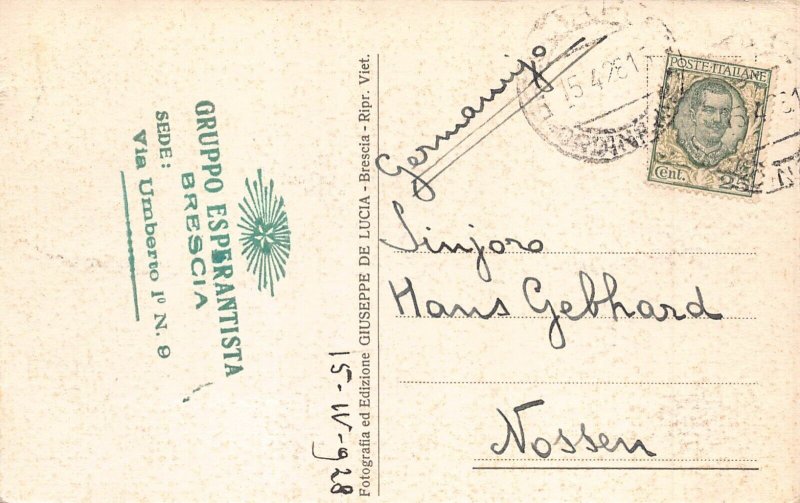 GRUPPO ESPERANTISTA
BRESCIA
SEDE:
Via Umberto Iº N. 9
15-IV-928
Fotografia ed Edizione GIUSEPPE DE LUCIA - Brescia - Ripr. Viet.
15 4 28 1
POSTE·ITALIANE
Cent. 25
Germanujo
Sinjoro
Hans Gebhard
Nossen